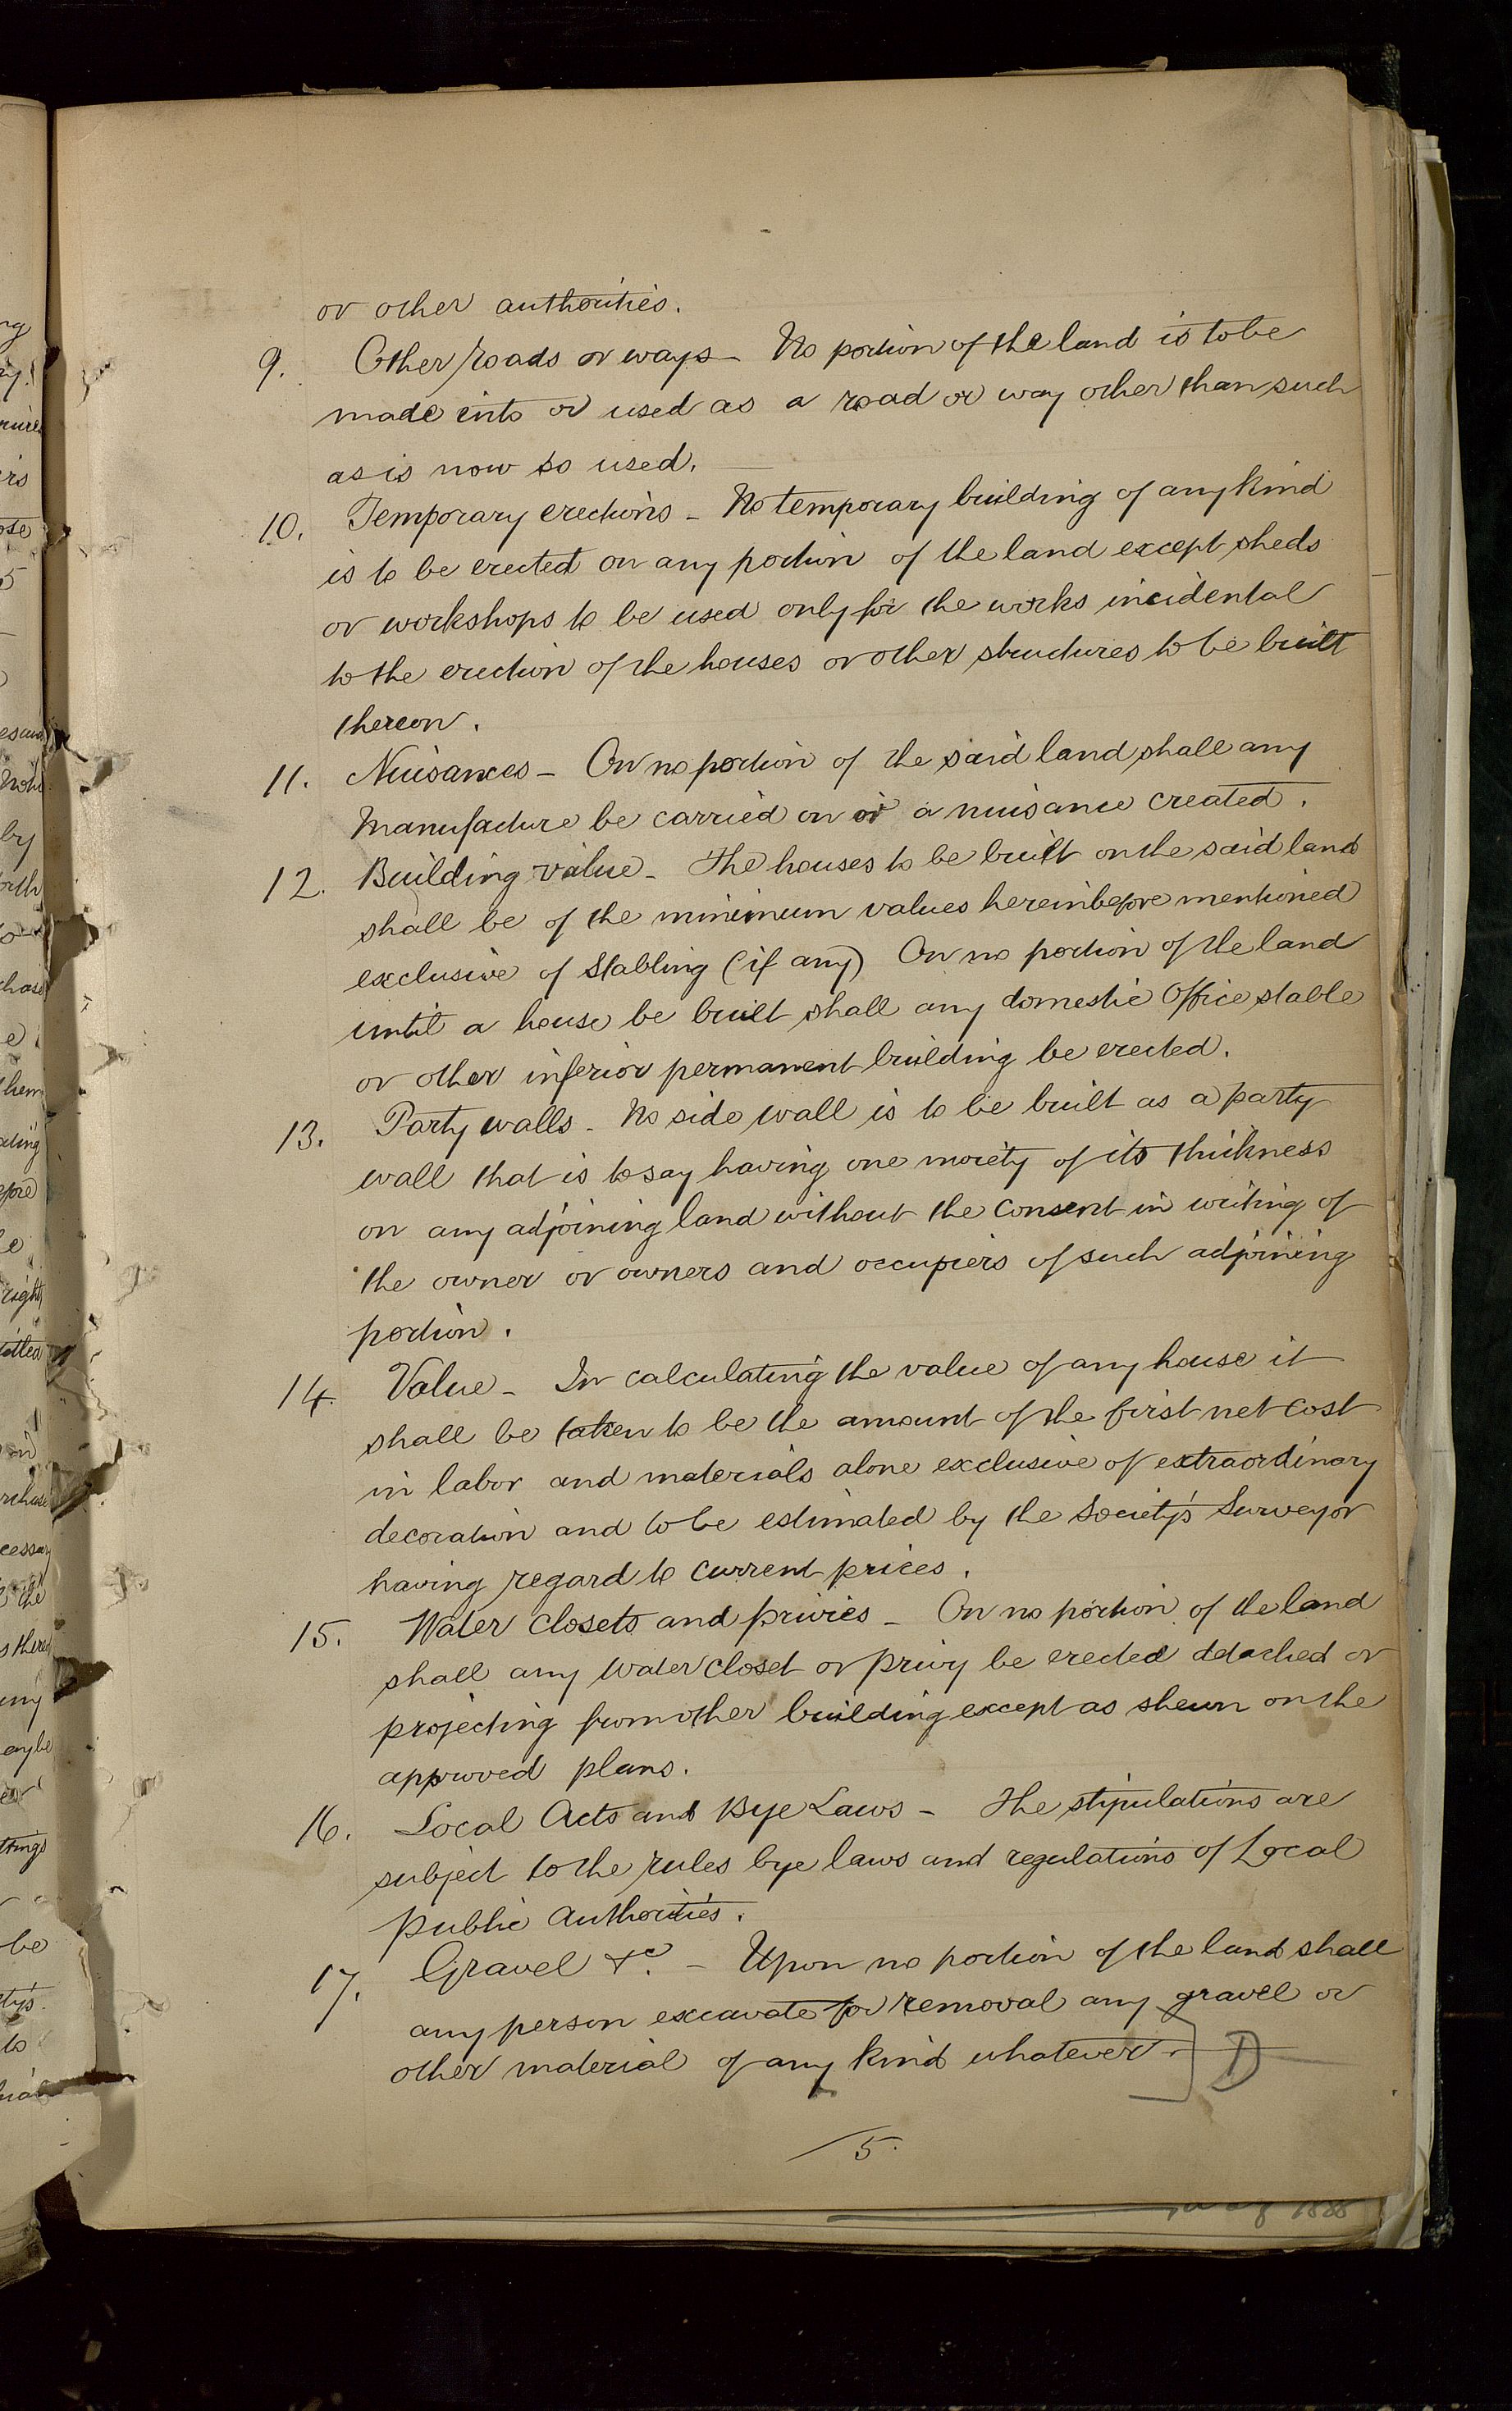 or other authorities.
9. Other roads or ways - No portion of the land is to be
made into or used as a road or way other than such
as is now so used.
10. Temporary erections - No temporary building of any kind
is to be erected on any portion of the land except sheds
or workshops to be used only for the works incidental
to the erection of the houses or other structures to be built
thereon.
11. Nuisances - On no portion of the said land shall any
Manufacture be carried on or a nuisance created.
12. Building value - The houses to be built on the said land
shall be of the minimum values hereinbefore mentioned
exclusive of Stabling (if any) On no portion of the land
until a house be built shall any domestic Office stable
or other inferior permanent building be erected.
13. Party walls - No side wall is to be built as a party
wall that is to say having one moiety of its thickness
on any adjoining land without the consent in writing of
the owner or owners and occupiers of such adjoining
portion.
14. Value - In calculating the value of any house it
shall be taken to be the amount of the first net cost
in labor and materials alone exclusive of extraordinary
decoration and to be estimated by the Society's Surveyor
having regard to current prices.
15. Water Closets and privies - On no portion of the land
shall any Water Closet or Privy be erected detached or
projecting from other building except as shewn on the
approved plans.
16. Local Acts and Bye Laws - The stipulations are
subject to the rules bye laws and regulations of Local
Public Authorities.
17. Gravel &c. - Upon no portion of the land shall
any person excavate for removal any gravel or
other material of any kind whatever.] D
5.
1888